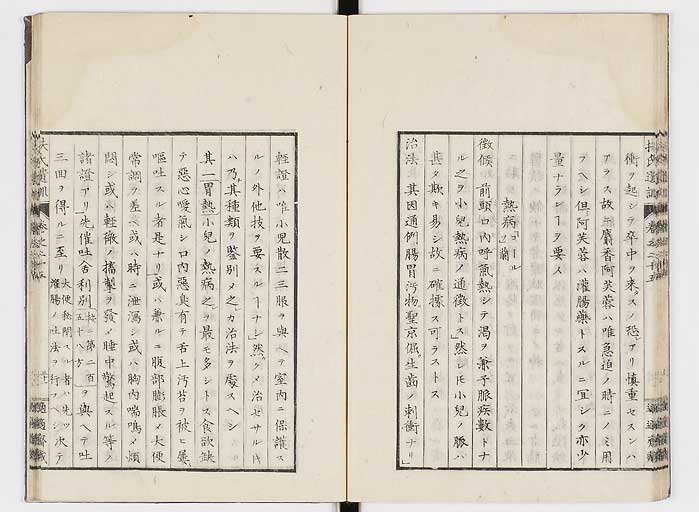 衝ヲ起シテ卒中ヲ来スノ恐アリ慎重セスンハ
アラス故ニ麝香阿芙蓉ハ唯急迫ノ時ニノミ用
フヘシ但阿芙蓉ハ灌腸藥トスルニ宜シク亦少
量ナランヲ要ス
熱病
徴候 前頭口内呼氣熱シテ渇ヲ兼子脈疾數トナ
ル之ヲ小兒熱病ノ通徴トス然レ𪜈小兒ノ脈ハ
甚タ欺キ易シ故ニ確據ス可ラストス
治法 其因通例腸胃汚物聖京倔生歯ノ刺衝ナリ
輕證ハ唯小児散二三服ヲ與ヘテ室内ニ保護ス
ルノ外他技ヲ要スルナシ然メ治セサル𪜈
ハ乃其種類ヲ鑒別メ之カ治法ヲ處スヘシ
其一胃熱小兒ノ熱病之ヲ最モ多シトス食欲缺
テ惡心噯氣シ口内惡臭有テ舌上汚苔ヲ被ヒ屢
嘔吐スル者是ナリ或ハ兼ルニ腹部膨脹メ大便
常調ヲ差ヘ或ハ時ニ泄瀉シ或ハ胸内喘鳴メ煩
悶シ或ハ輕微ノ搐搦ヲ發メ睡中驚起スル等ノ
諸證アリ先催吐舎利別 第二百五十八方 ヲ與ヘテ吐
三四ヲ得ルニ至リ 大便秘閉スル者ハ先ツ灌腸ノ吐法ヲ行フ シ次テ
扶氏遺訓 卷之二十五
適適齋藏